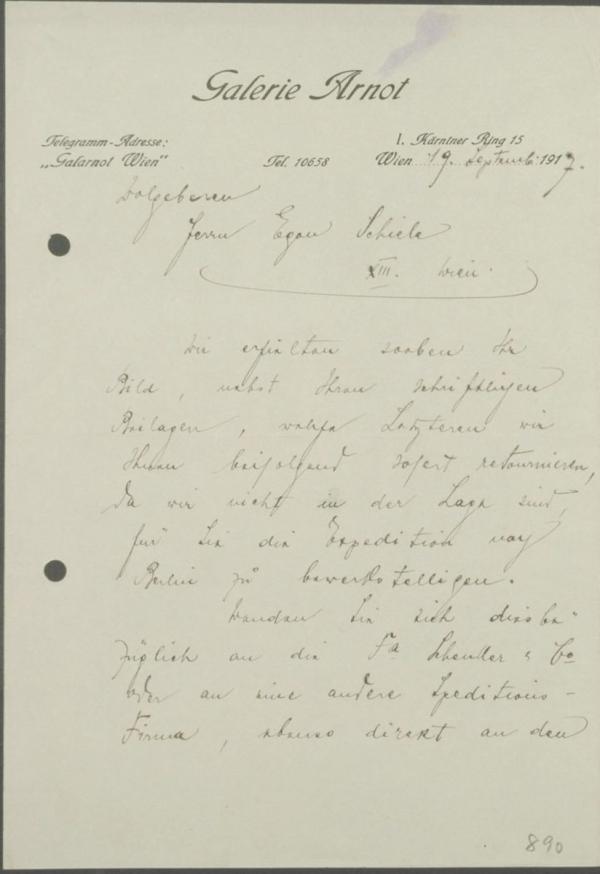 Galerie Arnot
Telegramm-Adresse:
„Galarnot Wien"
Tel. 10658
I. Kärntner Ring 15
Wien 19. Septemb. 1917.
Wolgeboren
Herrn Egon Schiele
XIII. Wien.
Wir erhielten soeben Ihr
Bild, nebst Ihren schriftlichen
Beilagen, welche Letzteren wir
Ihnen beifolgend sofort retournieren,
da wir nicht in der Lage sind,
für Sie die Expedition nach
Berlin zu bewerkstelligen.
Wenden Sie sich diesbe=
züglich an die Fa Schenker & Co
oder an eine andere Speditions-
Firma, ebenso direkt an den
890